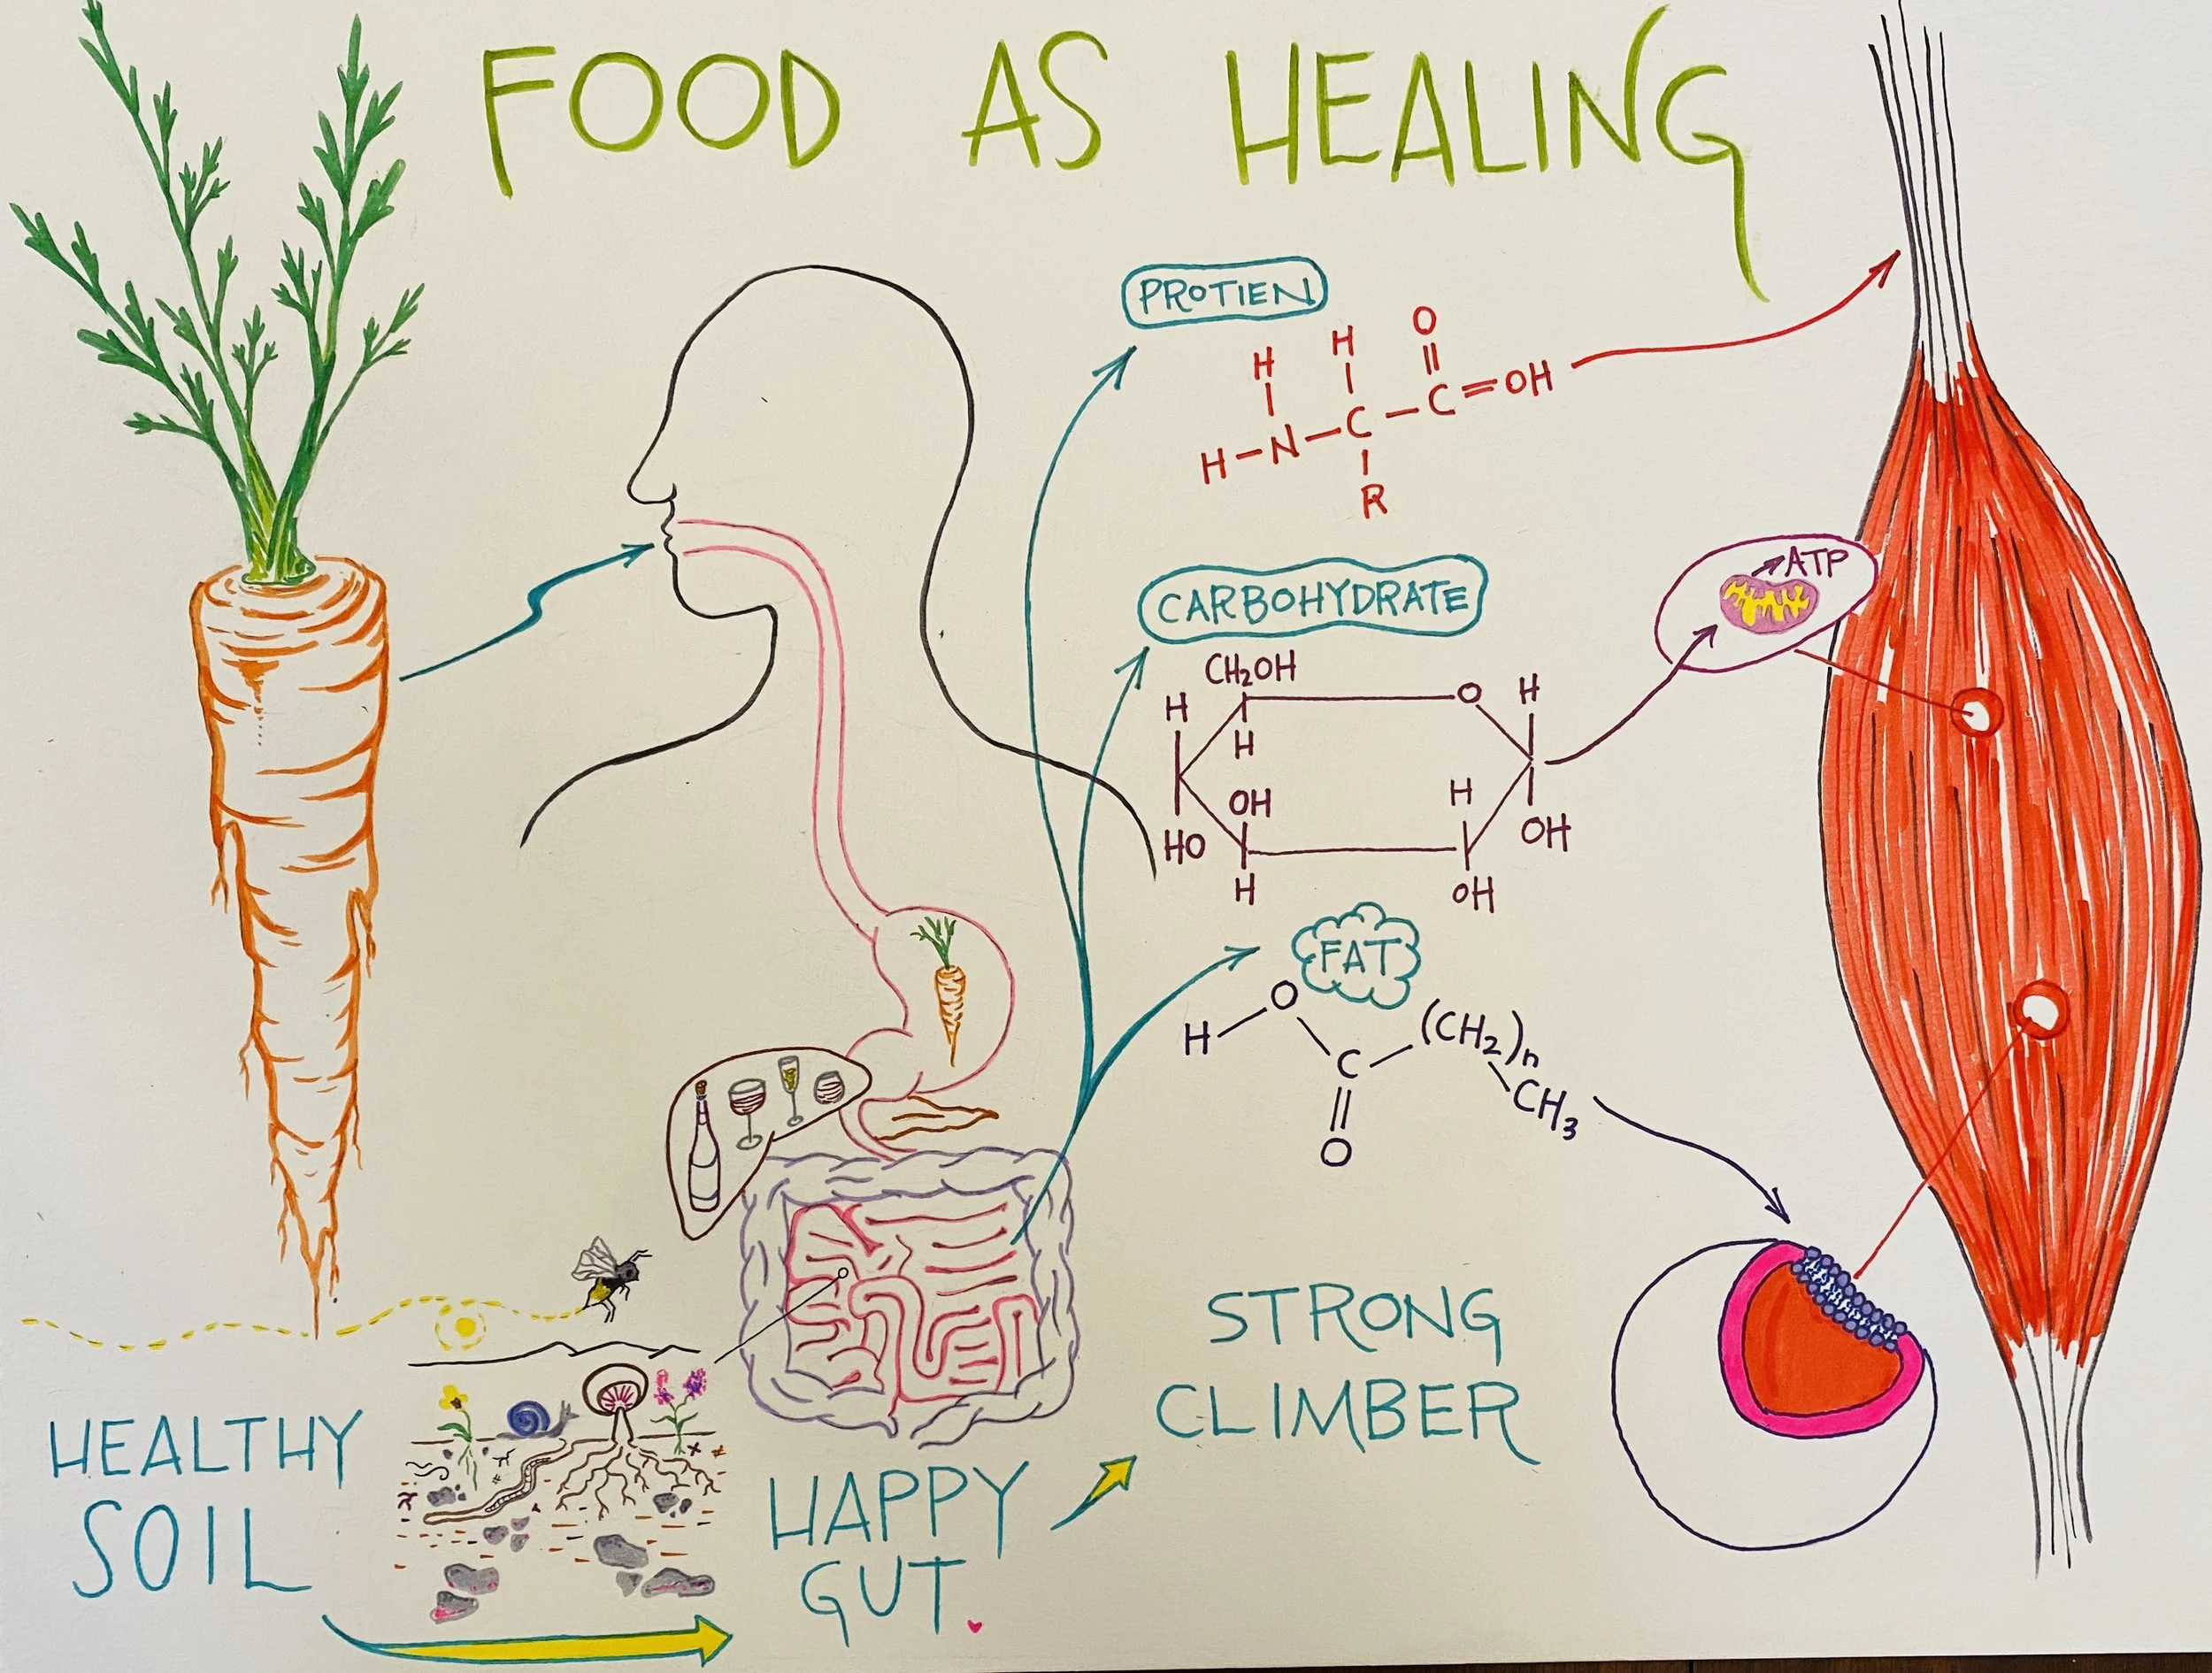 FOOD AS HEALING
PROTIEN
H H O
H–N–C–C=OH
R
CARBOHYDRATE
CH₂OH
H O H
H
OH H
HO OH
H OH
ATP
FAT
H–O
C–(CH₂)n
CH₃
O
HEALTHY
SOIL
HAPPY
GUT.
STRONG
CLIMBER